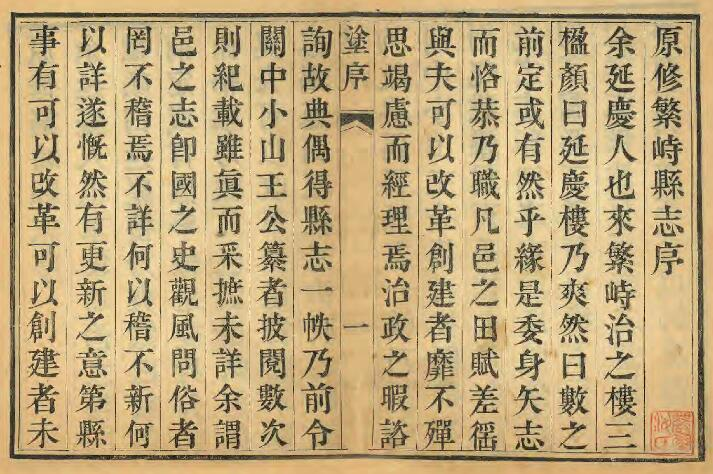 原修繁峙縣志序
余延慶人也來繁峙治之樓三
楹顏曰延慶樓乃爽然曰數之
前定或有然乎緣是委身矢志
而恪恭乃職凡邑之田賦差徭
與夫可以改革創建者靡不殫
思竭慮而經理焉治政之暇諮
塗序 一
詢故典偶得縣志一帙乃前令
關中小山王公纂者披閱數次
則紀載雖真而采摭未詳余謂
邑之志卽國之史觀風問俗者
罔不稽焉不詳何以稽不新何
以詳遂慨然有更新之意第縣
事有可以改革可以創建者未